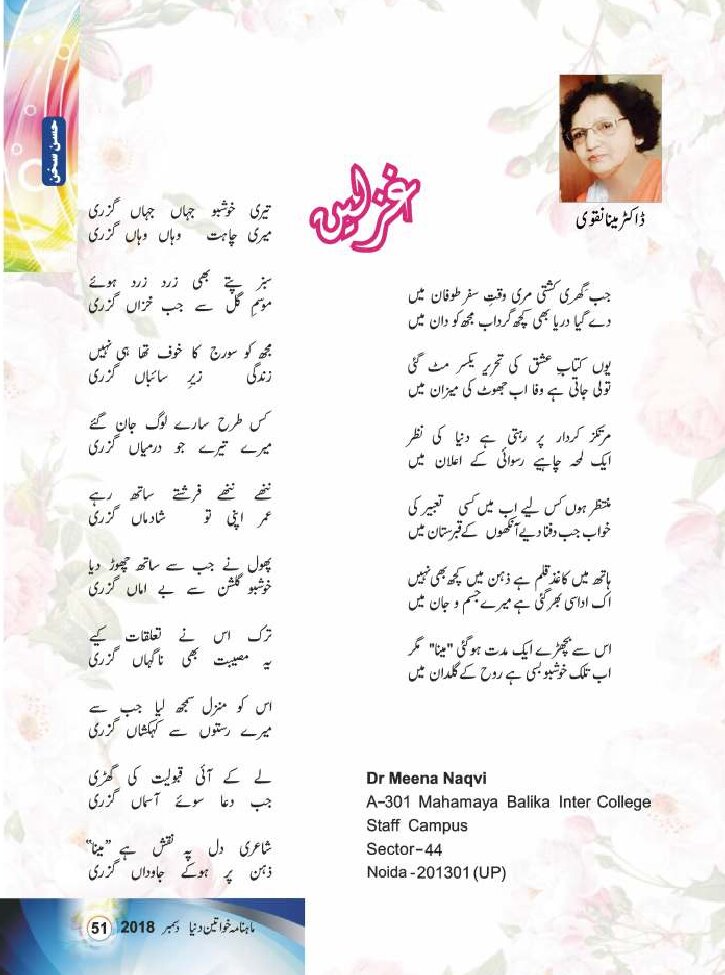 حسن سخن
ڈاکٹر مینا نقوی
غزلیں
جب گھری کشتی مری وقتِ سفر طوفان میں
دے گیا دریا بھی کچھ گرداب مجھ کو دان میں
یوں کتابِ عشق کی تحریر یکسر مٹ گئی
تولی جاتی ہے وفا اب جھوٹ کی میزان میں
مرتکز کردار پر رہتی ہے دنیا کی نظر
ایک لمحہ چاہیے رسوائی کے اعلان میں
منتظر ہوں کس لیے اب میں کسی تعبیر کی
خواب جب دفنا دیے آنکھوں کے قبرستان میں
ہاتھ میں کاغذ قلم ہے ذہن میں کچھ بھی نہیں
اک اداسی بھر گئی ہے میرے جسم و جان میں
اس سے بچھڑے ایک مدت ہوگئی "مینا" مگر
اب تلک خوشبو بسی ہے روح کے گلدان میں
تیری خوشبو جہاں جہاں گزری
میری چاہت وہاں وہاں گزری
سبز پتے بھی زرد زرد ہوئے
موسمِ گل سے جب خزاں گزری
مجھ کو سورج کا خوف تھا ہی نہیں
زندگی زیرِ سائباں گزری
کس طرح سارے لوگ جان گئے
میرے تیرے جو درمیاں گزری
ننھے ننھے فرشتے ساتھ رہے
عمر اپنی تو شادماں گزری
پھول نے جب سے ساتھ چھوڑ دیا
خوشبو گلشن سے بے اماں گزری
ترک اس نے تعلقات کیے
یہ مصیبت بھی ناگہاں گزری
اس کو منزل سمجھ لیا جب سے
میرے رستوں سے کہکشاں گزری
لے کے آئی قبولیت کی گھڑی
جب دعا سوئے آسماں گزری
شاعری دل پہ نقش ہے "مینا"
ذہن پر ہوکے جاوداں گزری
Dr Meena Naqvi
A-301 Mahamaya Balika Inter College
Staff Campus
Sector-44
Noida-201301 (UP)
ماہنامہ خواتین دنیا دسمبر 2018 51